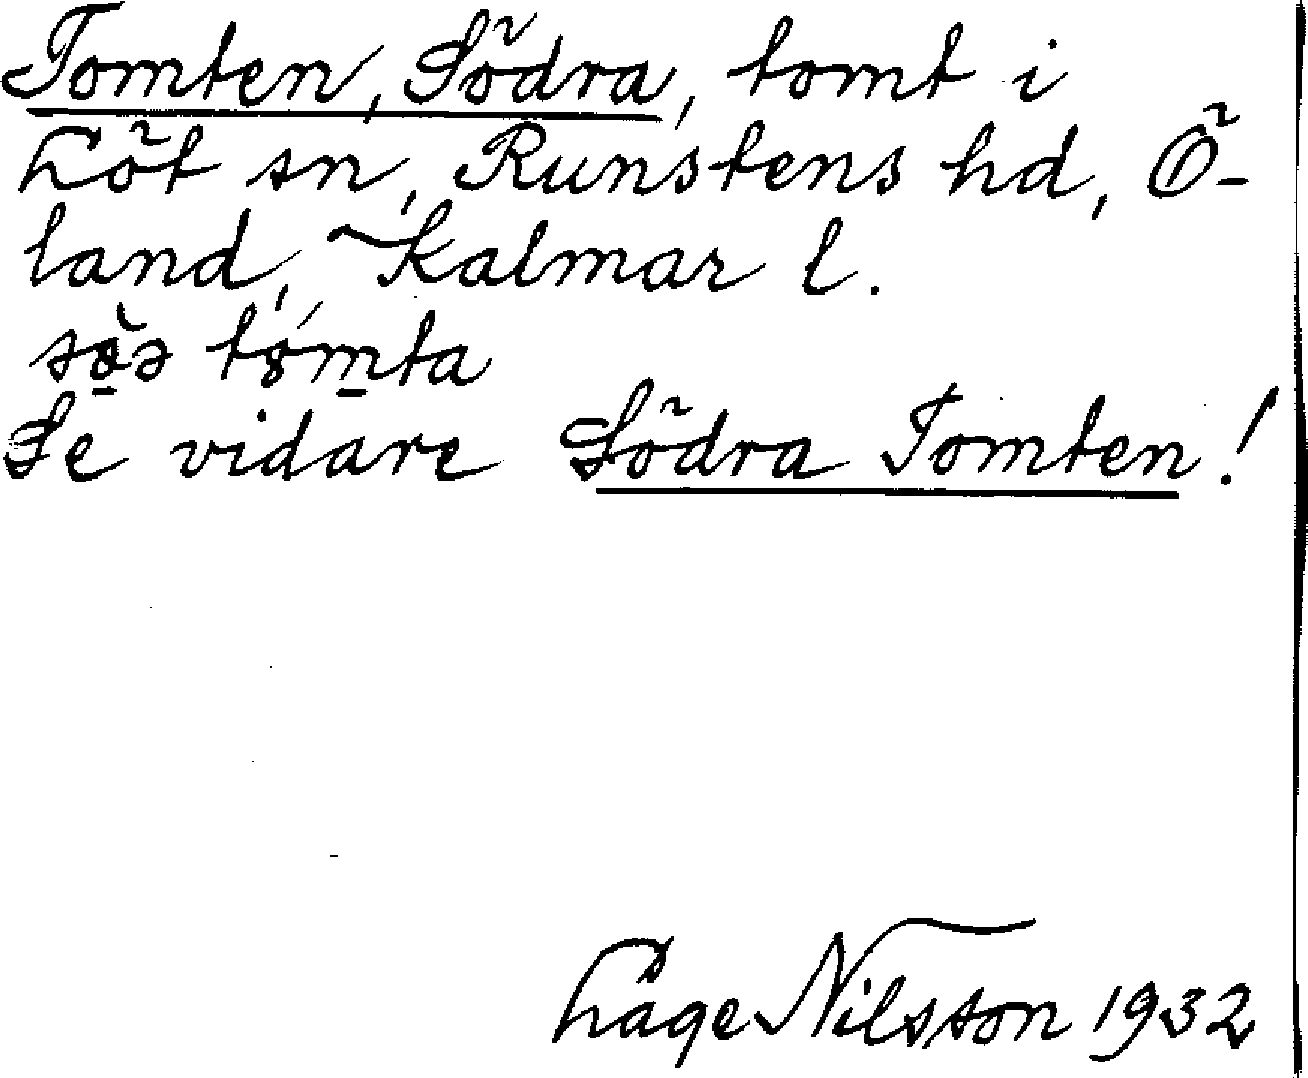 Tomten, Södra, tomt i
Löt sn, Runstens hd, Ö-
land, Kalmar l.
Se vidare Södra Tomten!
Lage Nilsson 1932